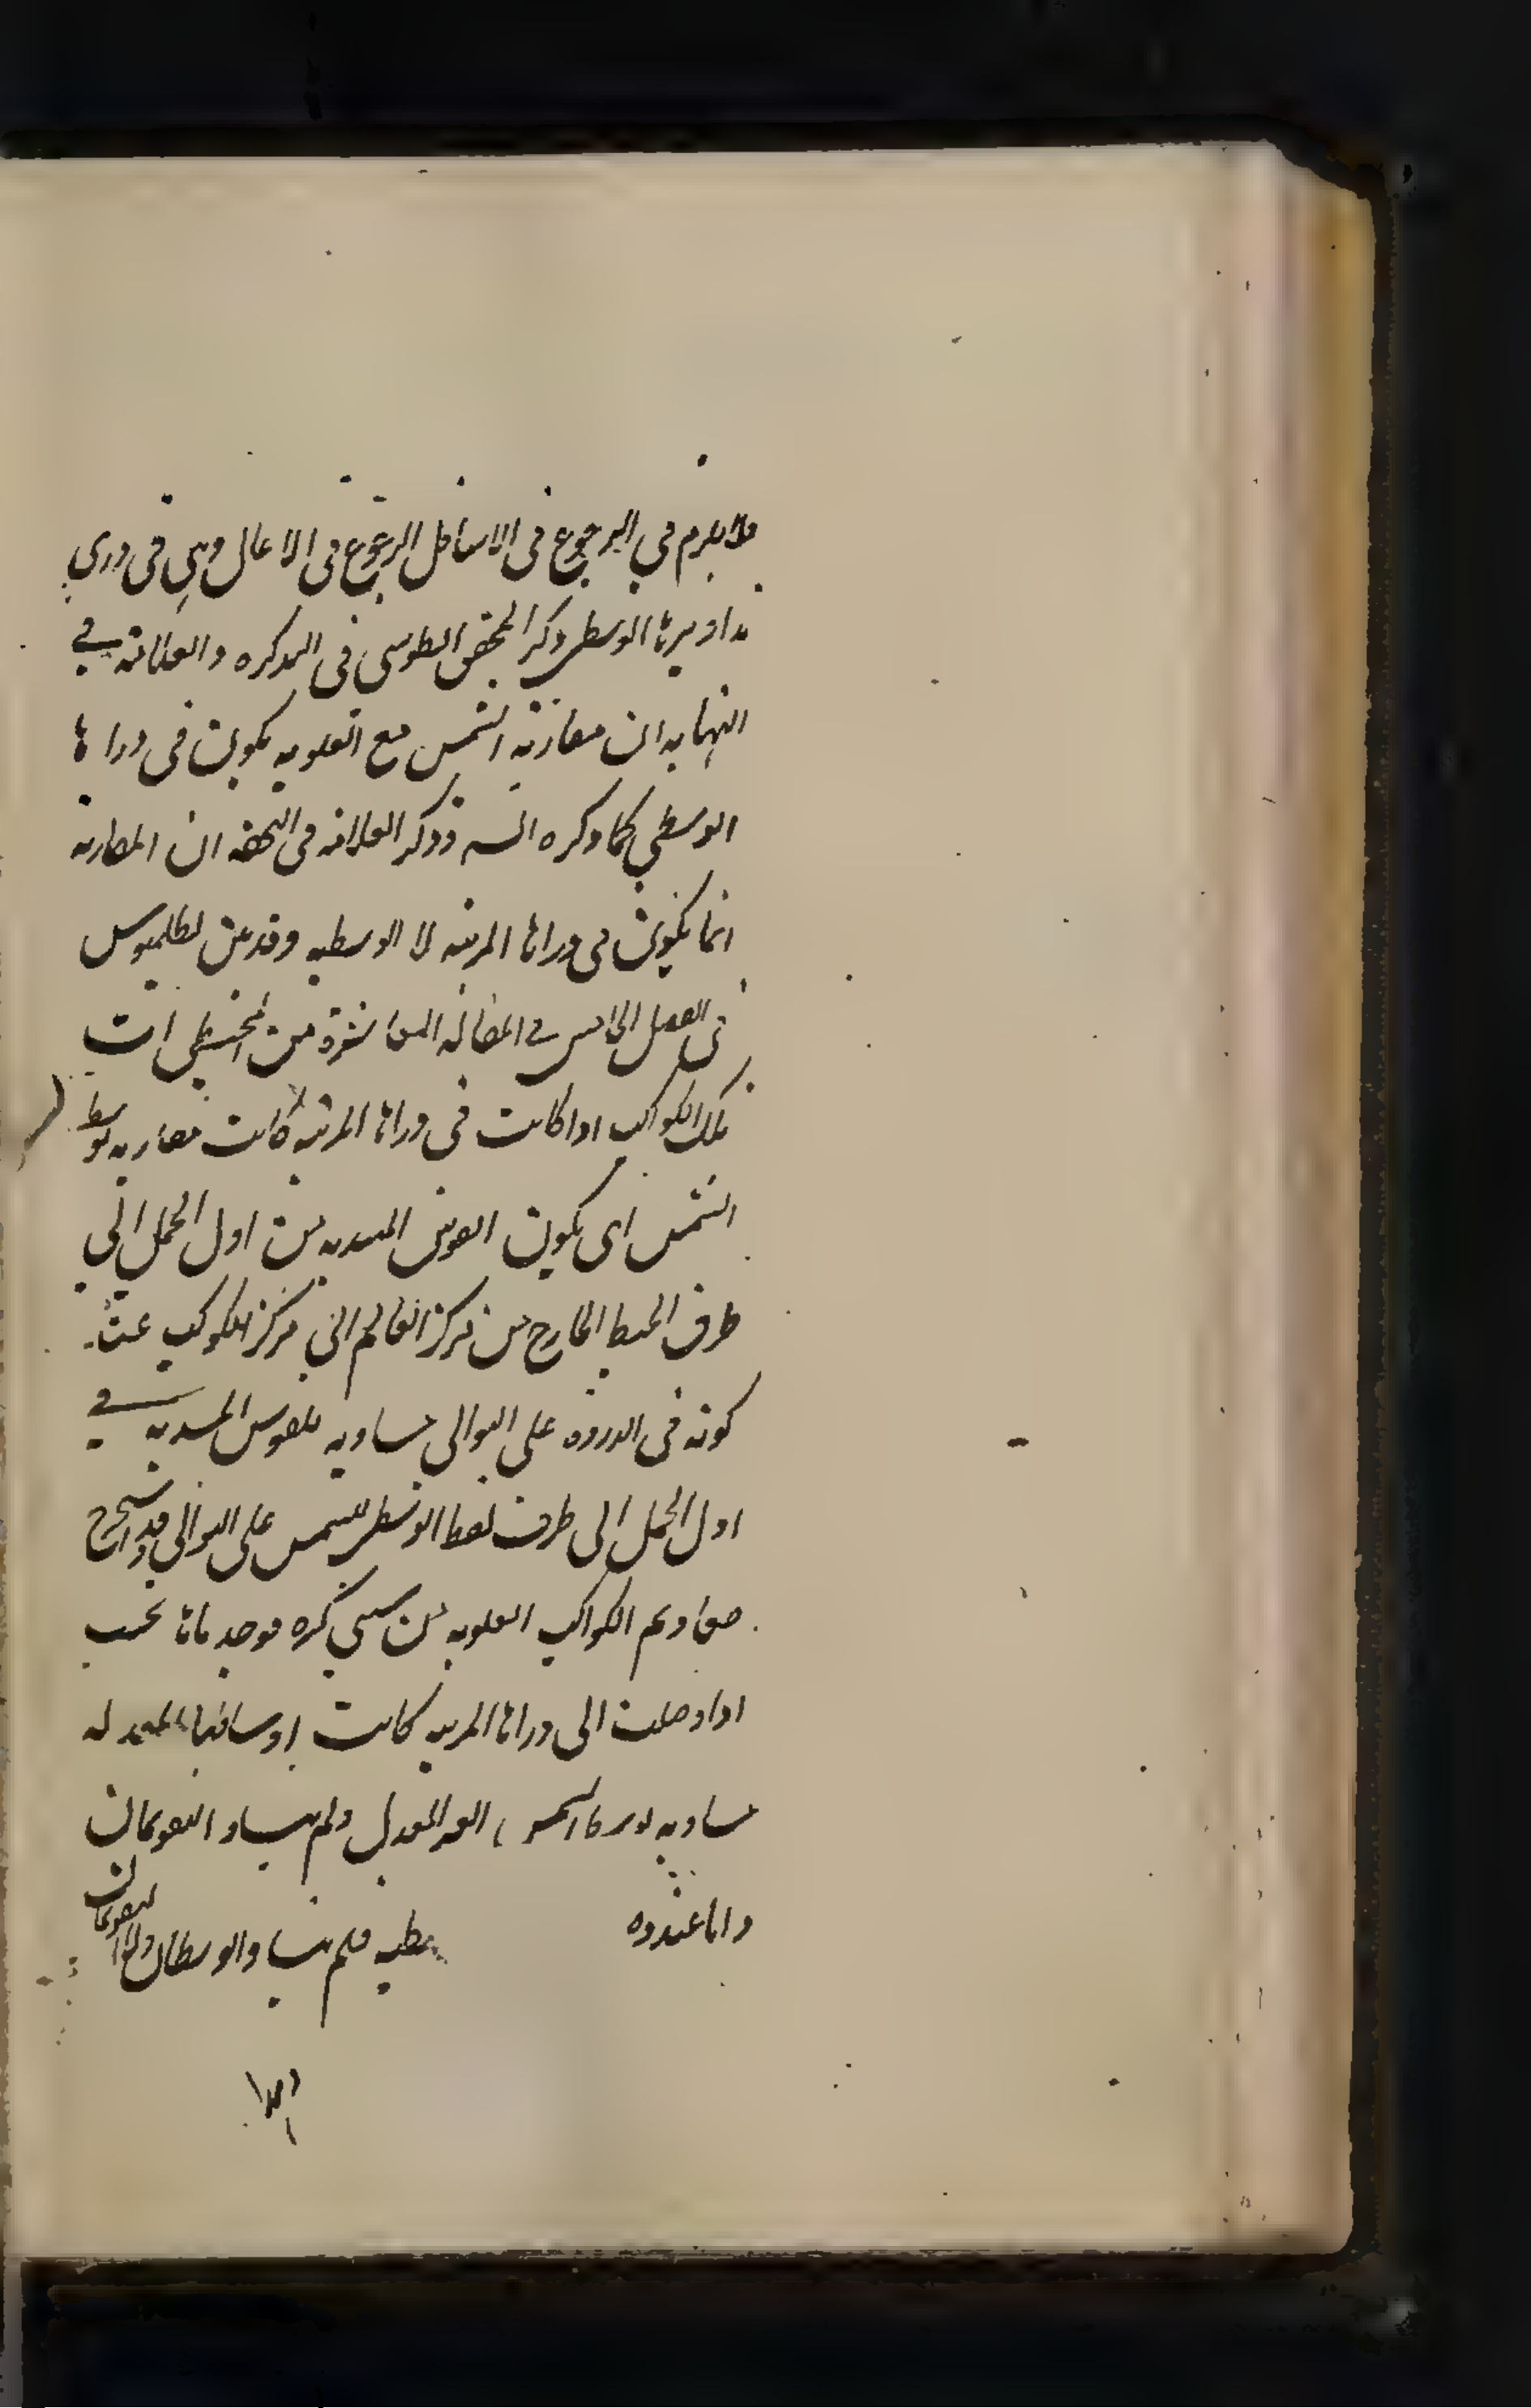 فلا يلزم في الرجوع في الاسافل الرجوع في الاعالي وهي في ذري
تداويرها الوسطي ذكر المحقق الطوسي في التذكرة والعلامة في
النهاية ان مقارنة الشمس مع العلوية يكون في ذراها
الوسطي كما ذكره وذكر العلامة في التحفة ان المقارنة
انما يكون في ذراها المرئية لا الوسطية وقد بطلميوس
في الفصل الخامس في المقالة العاشرة من المجسطي ان
تلك الكواكب اذا كانت في ذراها المرئية كانت مقارنة لوسط
الشمس اي يكون القوس المبتدية من اول الحمل الي
طرف الخط الخارج من مركز العالم الي مركز الكوكب عند
كونه في الذروة علي التوالي مساوية للقوس المبتدية في
اول الحمل الي طرف لخط الوسط للشمس علي التوالي وقد استخرج
تقاويم الكواكب العلوية من سني كثيرة فوجد ناها بحسب
اذا وصلت الي ذراها المرئية كانت اوساطها المعدلة
مساوية الشمس المعدل ولم يتساو التقويمان
واما عند ذروه فلم يتساو الوسطان ولا التقويمان